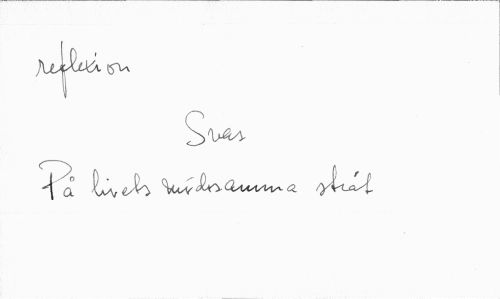 reflexion
Svas
På livets mödosamma stråt